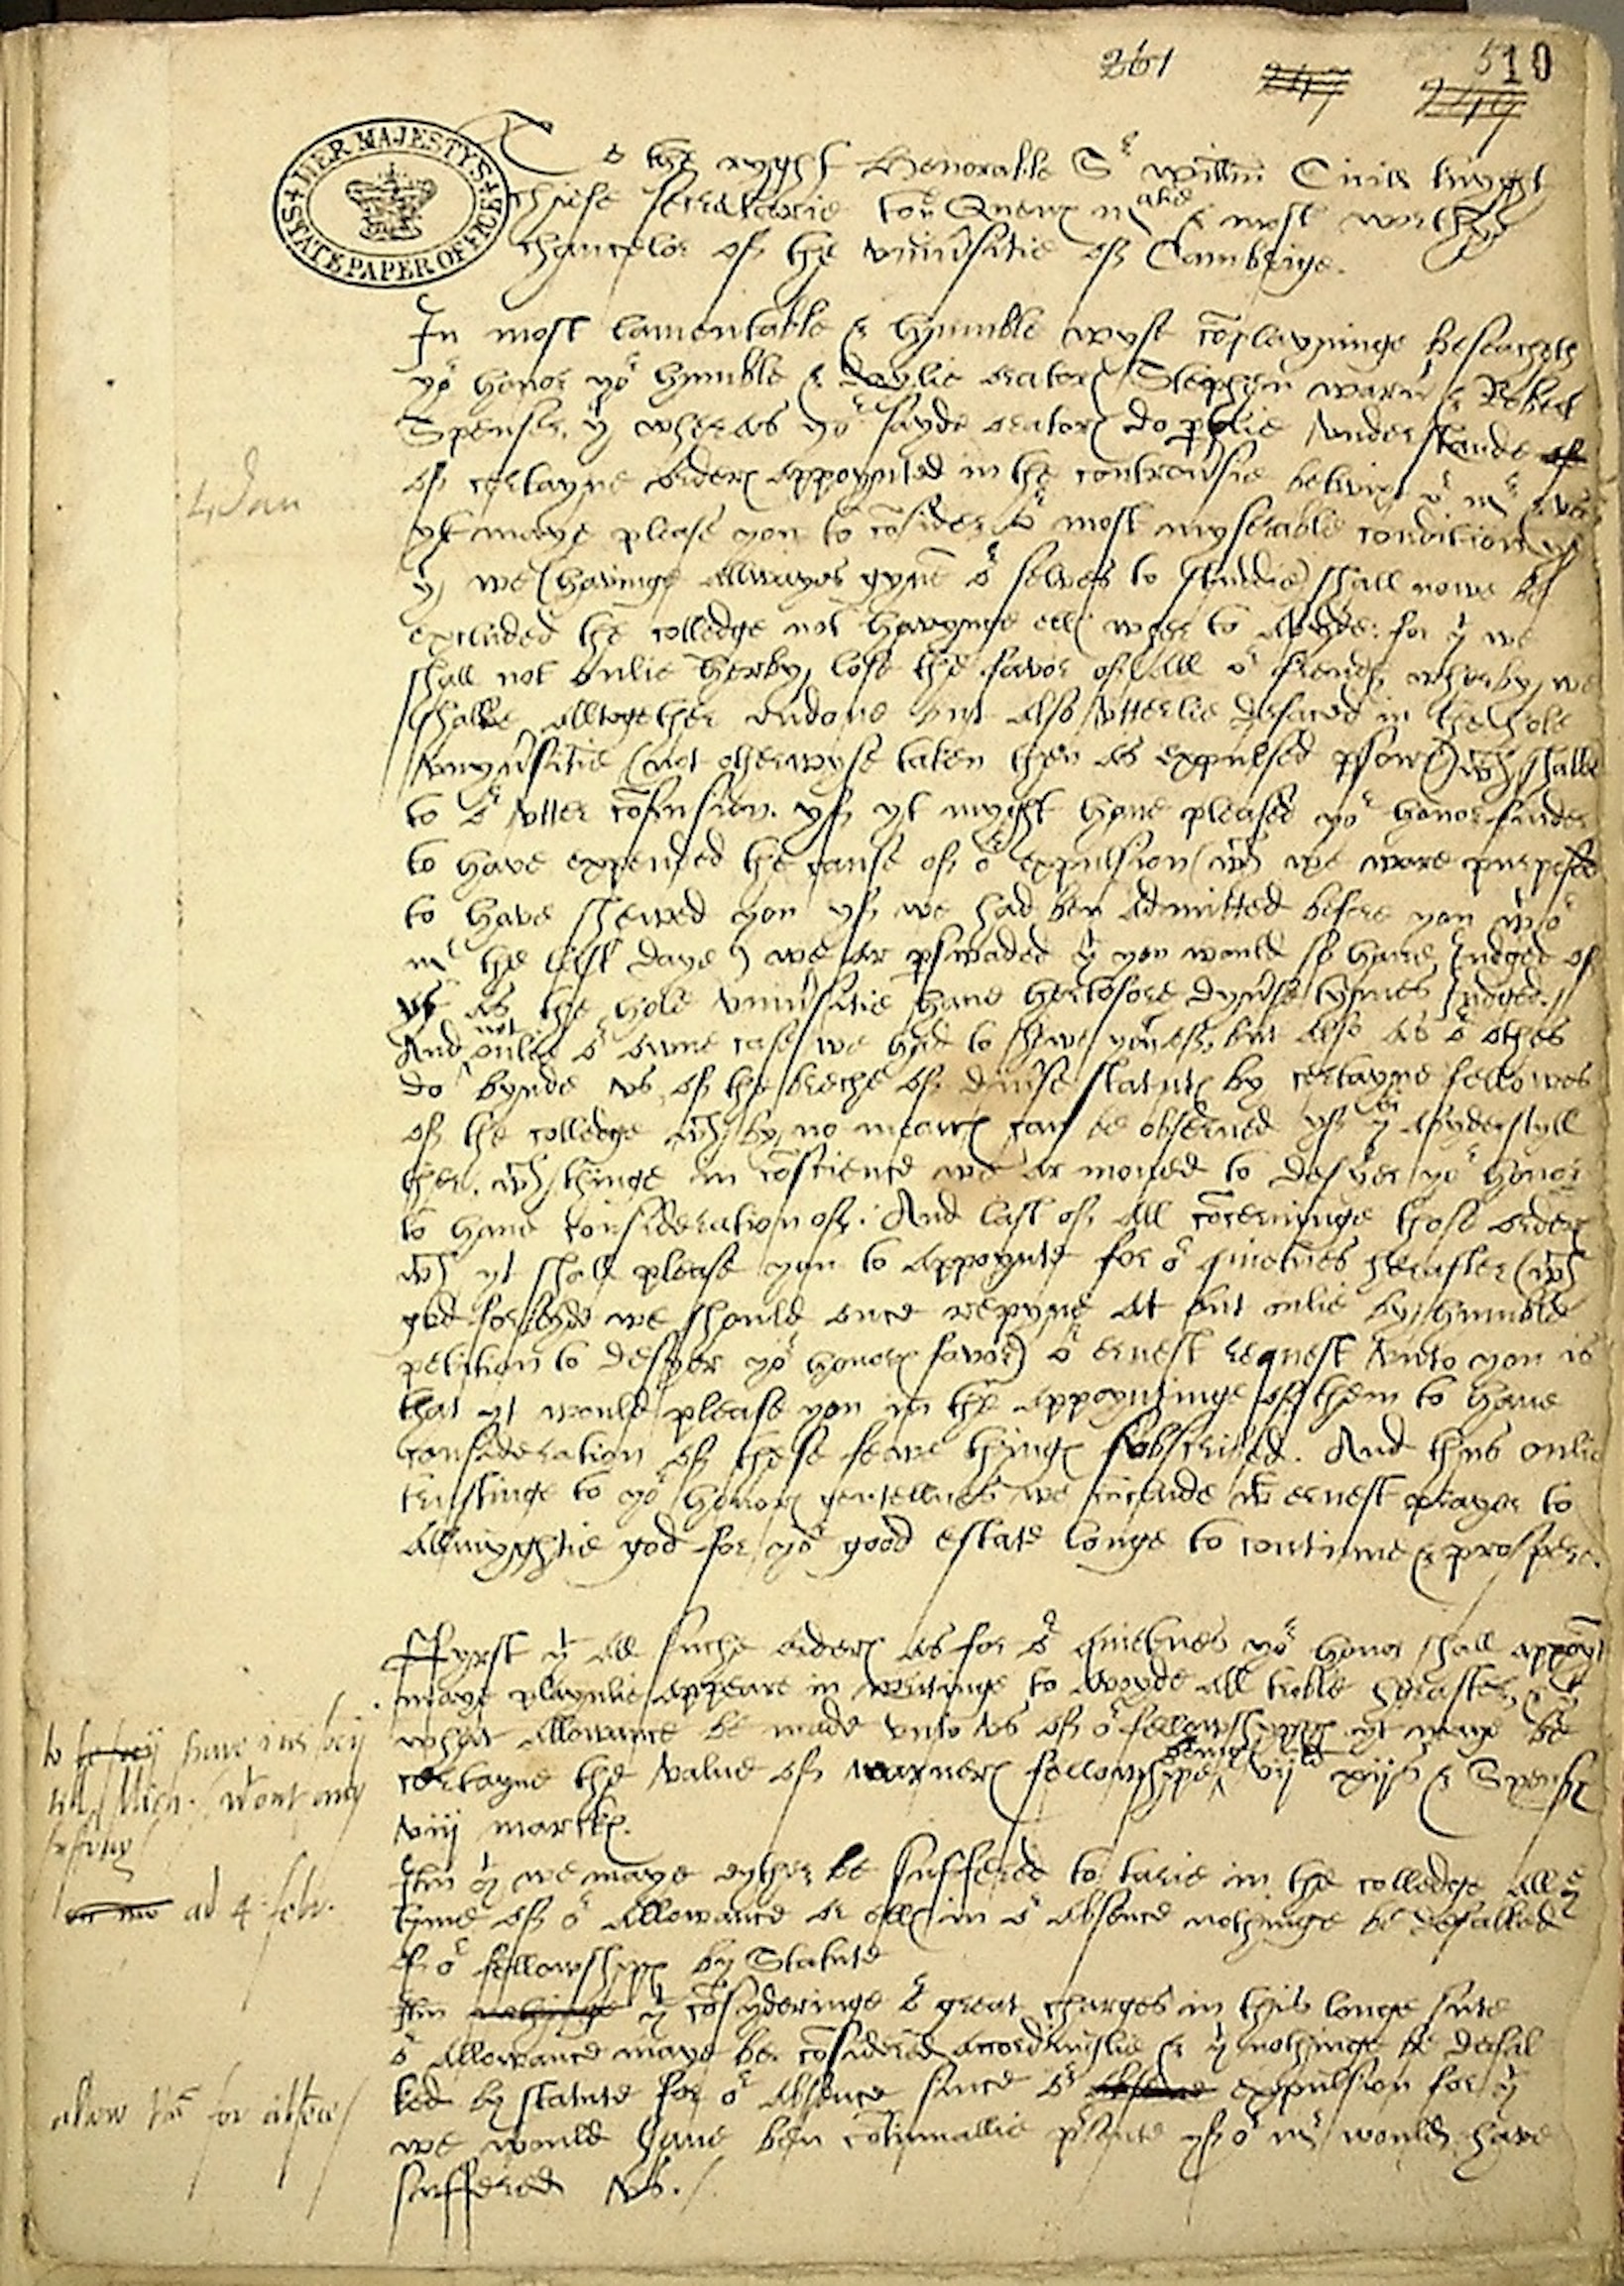 261 247 249 510
HER MAJESTYS STATE PAPER OFFICE
To the ryght Honorable Sr Willm Cicill knyght
chiefe secretarie to ye Quenes matie & most worthy
chancelor of the vniuersitie of Cambrige.
In most lamentable & humble wyse coplayninge beseacheth
yor honor yor humble & daylie orators Stephen warnr & Robert
Spenser, yt wheras yor sayde orators do ptlie vnderstande of
of certayne orders appoynted in the controuersie betwixt or mr & vs
4 Jan
yt maye please you to cosider or most myserable condition yf
yt we (havinge allwayes gyue or selves to studdie) shall nowe be
excluded the colledge not havynge ells wher to abyde: for yt we
shall not onlie herby lose the favor of all or frends, wherby we
shalbe alltogether vndone but also vtterlie defaced in the hole
vnyuersitie (not otherwyse taken then as expulsed psons) wch shalbe
to or vtter cofusion. yf yt myght haue pleased yor honor
to have expended the cause of or expulsion (wch we were purposed
to have shewed you yf we had ben admitted before you wt or
mr the last daye) we ar pswaded yt you would so haue iudged of
vs as the hole vniuersitie haue hertofore dyuerse tymes iudged.
And not onlie or owne case we had to shewe you of, but also as or othes
do bynde vs of the breche of diuerse statuts by certayne fellowes
of the colledge wch by no means can be obserued yf yei abyde styll
ther. wch thinge in coscience we ar moued to desyer yor honor
to haue consideration of. And last of all cocerninge those orders
wch yt shall please you to appoynte for or quietnes herafter (wch
god forbyd we should once repyne at but onlie by humble
petition to desyer yor honors favor) or ernest request vnto you is
that yt would please you in the appoyntinge of them to haue
consideration of these feawe things subscribed. And thus onlie
trustinge to yor honors gentellnes we conclude wt ernest prayer to
Allmyghtie god for yor good estate longe to continue & prospere.
Fyrst yt all suche orders as for or quietnes yor honor shall appoynt
maye playnlie appeare in writinge to avoyde all troble herafter, & yt
what allowance be made vnto vs of or fellowshypps yt maye be
certayne the value of warners fellowshipe beinge vijli xiijs & Spensers
viij marcks.
Itm yt we maye eyther be suffered to tarie in the colledge all ye
ad 4 febr.
tyme of or allowance or ells in or absence nothinge be defalked
of or fellowshipps by Statute
Itm yt cosyderinge or great charges in this longe sute
or allowance maye be cosidered accordinglie & yt nothinge be defal
allow for absece
ked by statute for or absence since or absence expulsion for yt
we would haue ben cotinuallie psente yf or mr would have
suffered vs.